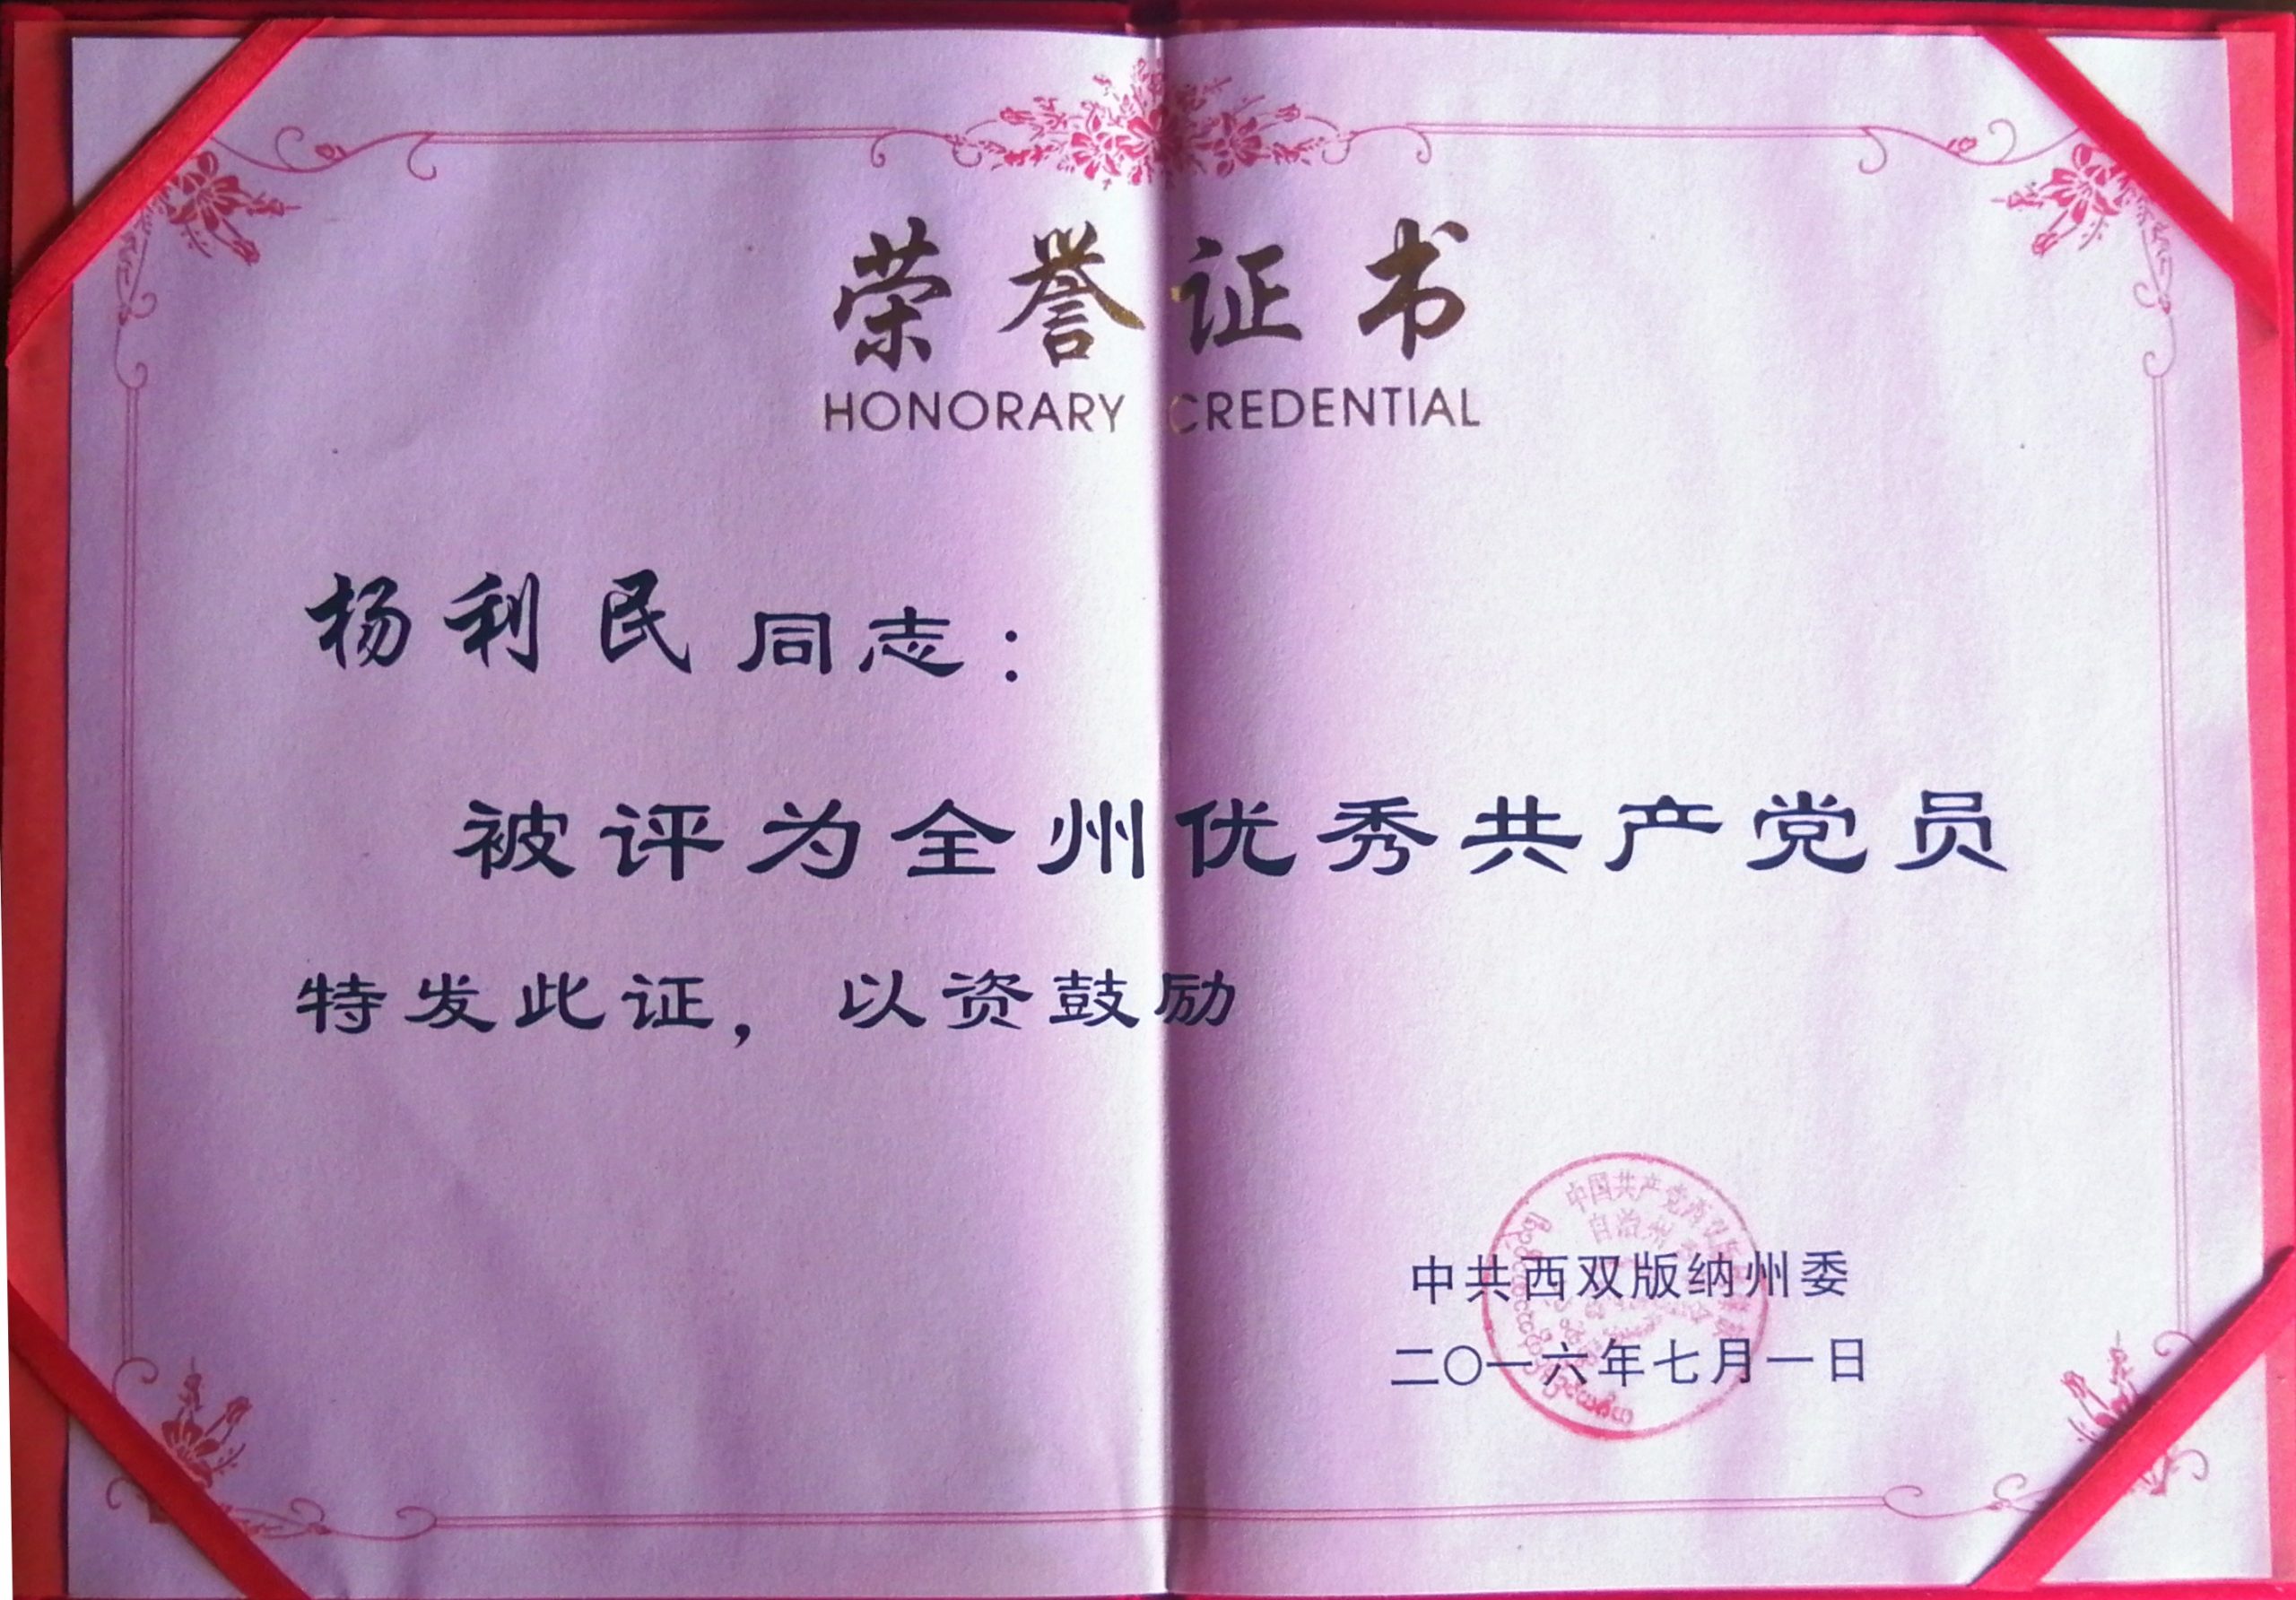 荣誉证书
HONORARY CREDENTIAL
杨利民同志：
被评为全州优秀共产党员
特发此证，以资鼓励
中国共产党西双版
自治州
中共西双版纳州委
二〇一六年七月一日